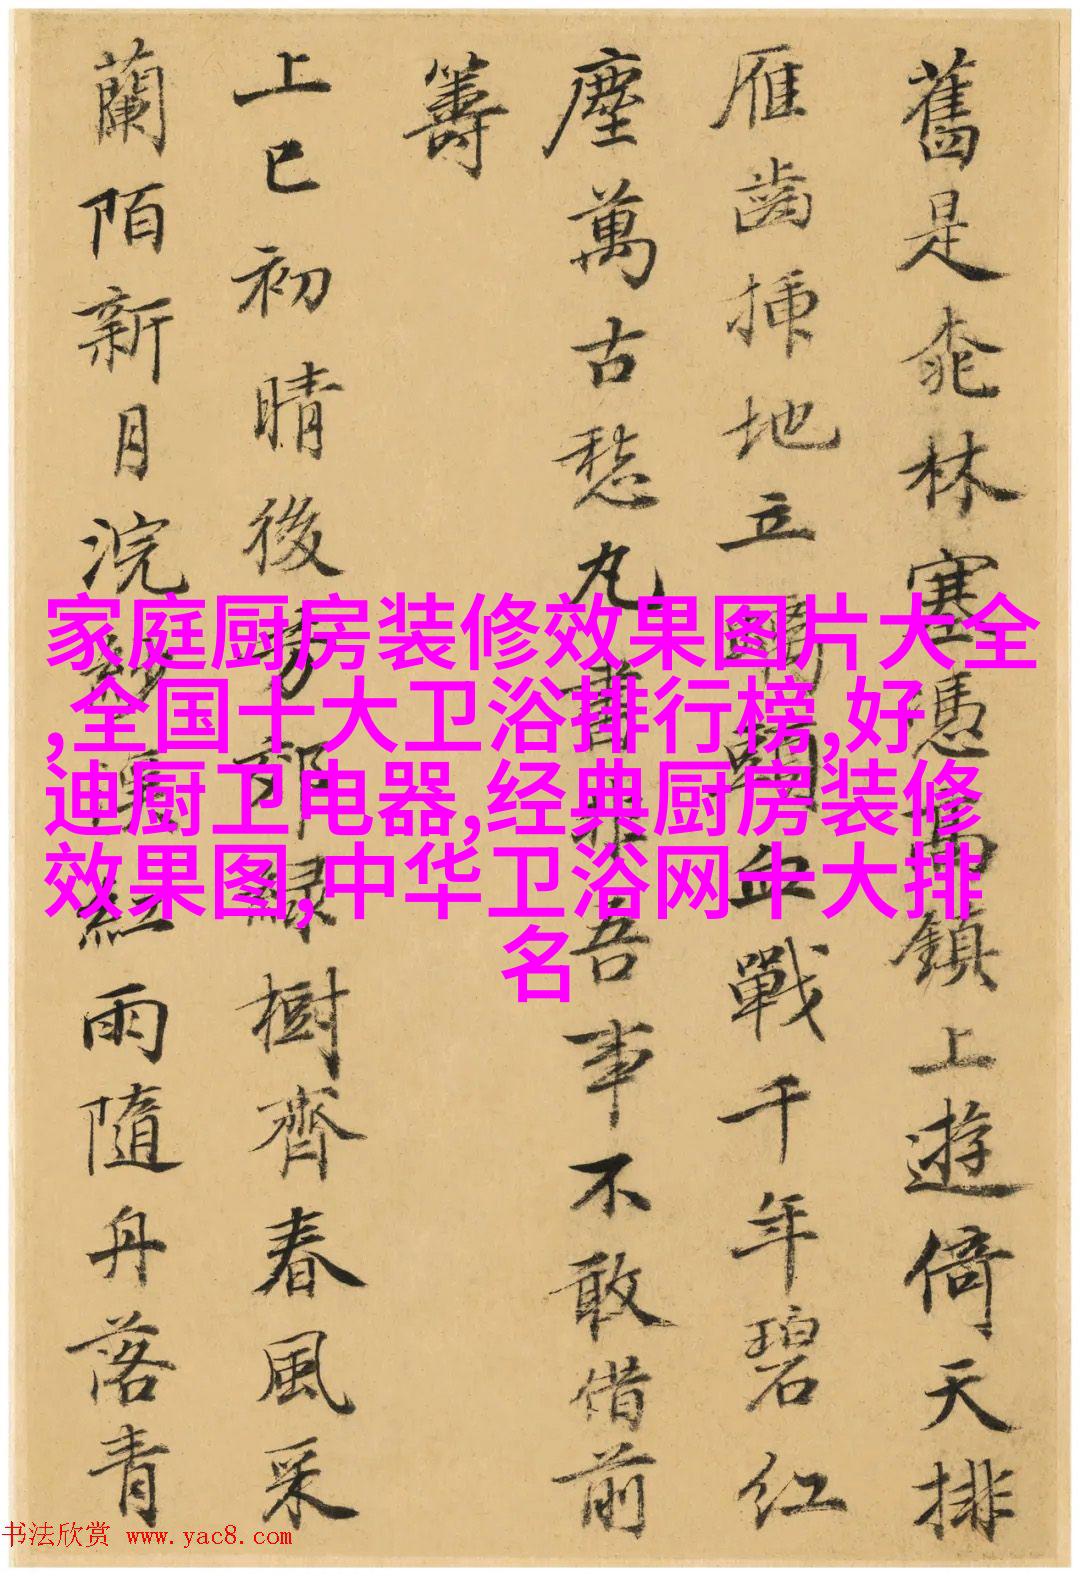 舊是桃林塞憑當鎮上遊倚天排
雁齒插地立關血戰千年碧紅
塵萬古愁丸書非吾事不敢借前
籌
上巳初晴後芳郊綠樹齊春風采
蘭陌新月浣溪紅雨隨舟落青
家庭厨房装修效果图片大全
,全国十大卫浴排行榜,好
迪厨卫电器,经典厨房装修
效果图,中华卫浴网十大排
名
书法欣赏 www.yac8.com